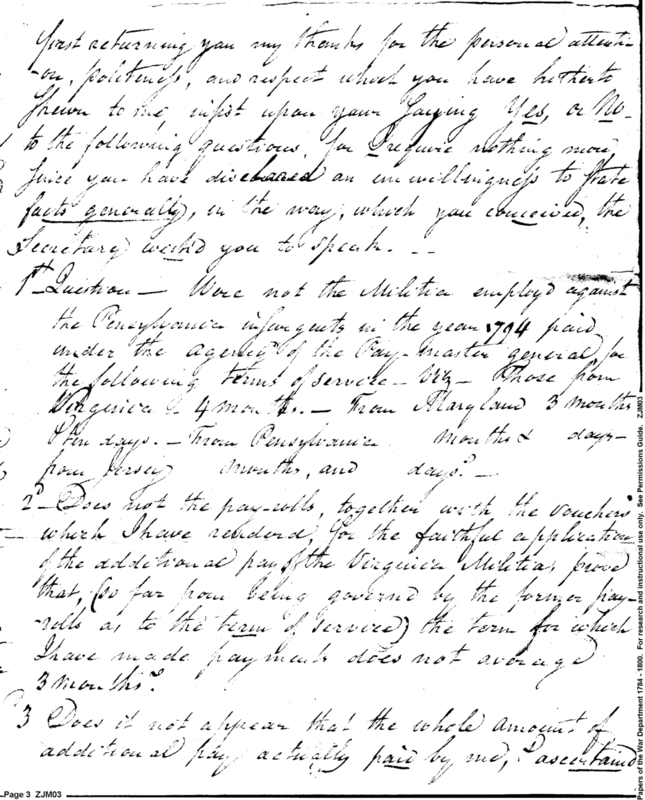 first returning you my thanks for the personal attenti-
-on, politeness, and respect which you have hitherto
shewn to me insist upon your saying Yes, or No-
to the following questions, for I require nothing more,
since you have an unwillingness to state
facts generally, in the way, which you conceived, the
Secretary wish'd you to speak. - -
1st Question - Were not the Militia employ'd against
the Pensylvania insurgents in the year 1794 paid
under the agency of the Pay-Master general, for
the following terms of service - Viz - Those from
Virginia 4 months. - From Maryland 3 months
& ten days. - From Pensylvania months & days -
from Jersey months, and days? -
2d - Does not the pay-rolls, together with the vouchers
which I have renderd, for the faithful application
of the additional pay of the Virginia Militia, prove
that, (so far from being governed by the former pay-
-rolls as to the term of service) the term for which
I have made payments does not average
3 months?
3 Does it not appear that the whole amount of
additional pay actually paid by me, & ascertaind
Page 3 ZJM03
Papers of the War Department 1784 - 1800. For research and instructional use only. See Permissions Guide. ZJM03